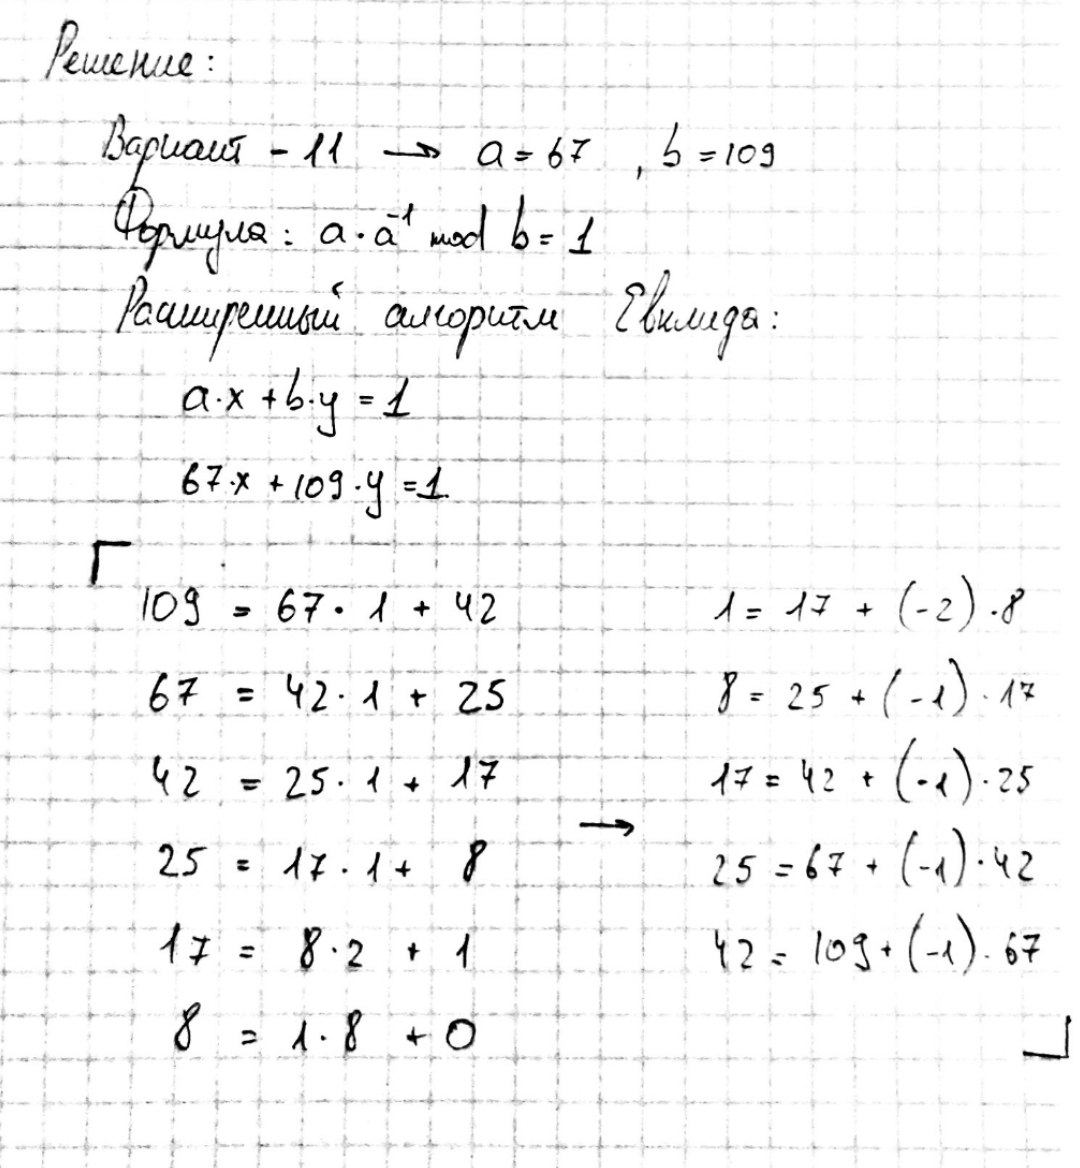 Решение:
Вариант - 11 → a = 67 , b = 109
Формула: a · a⁻¹ mod b = 1
Расширенный алгоритм Евклида:
a·x + b·y = 1
67·x + 109·y = 1.
109 = 67 · 1 + 42
67 = 42 · 1 + 25
42 = 25 · 1 + 17
25 = 17 · 1 + 8
17 = 8 · 2 + 1
8 = 1 · 8 + 0
→
1 = 17 + (-2) · 8
8 = 25 + (-1) · 17
17 = 42 + (-1) · 25
25 = 67 + (-1) · 42
42 = 109 + (-1) · 67